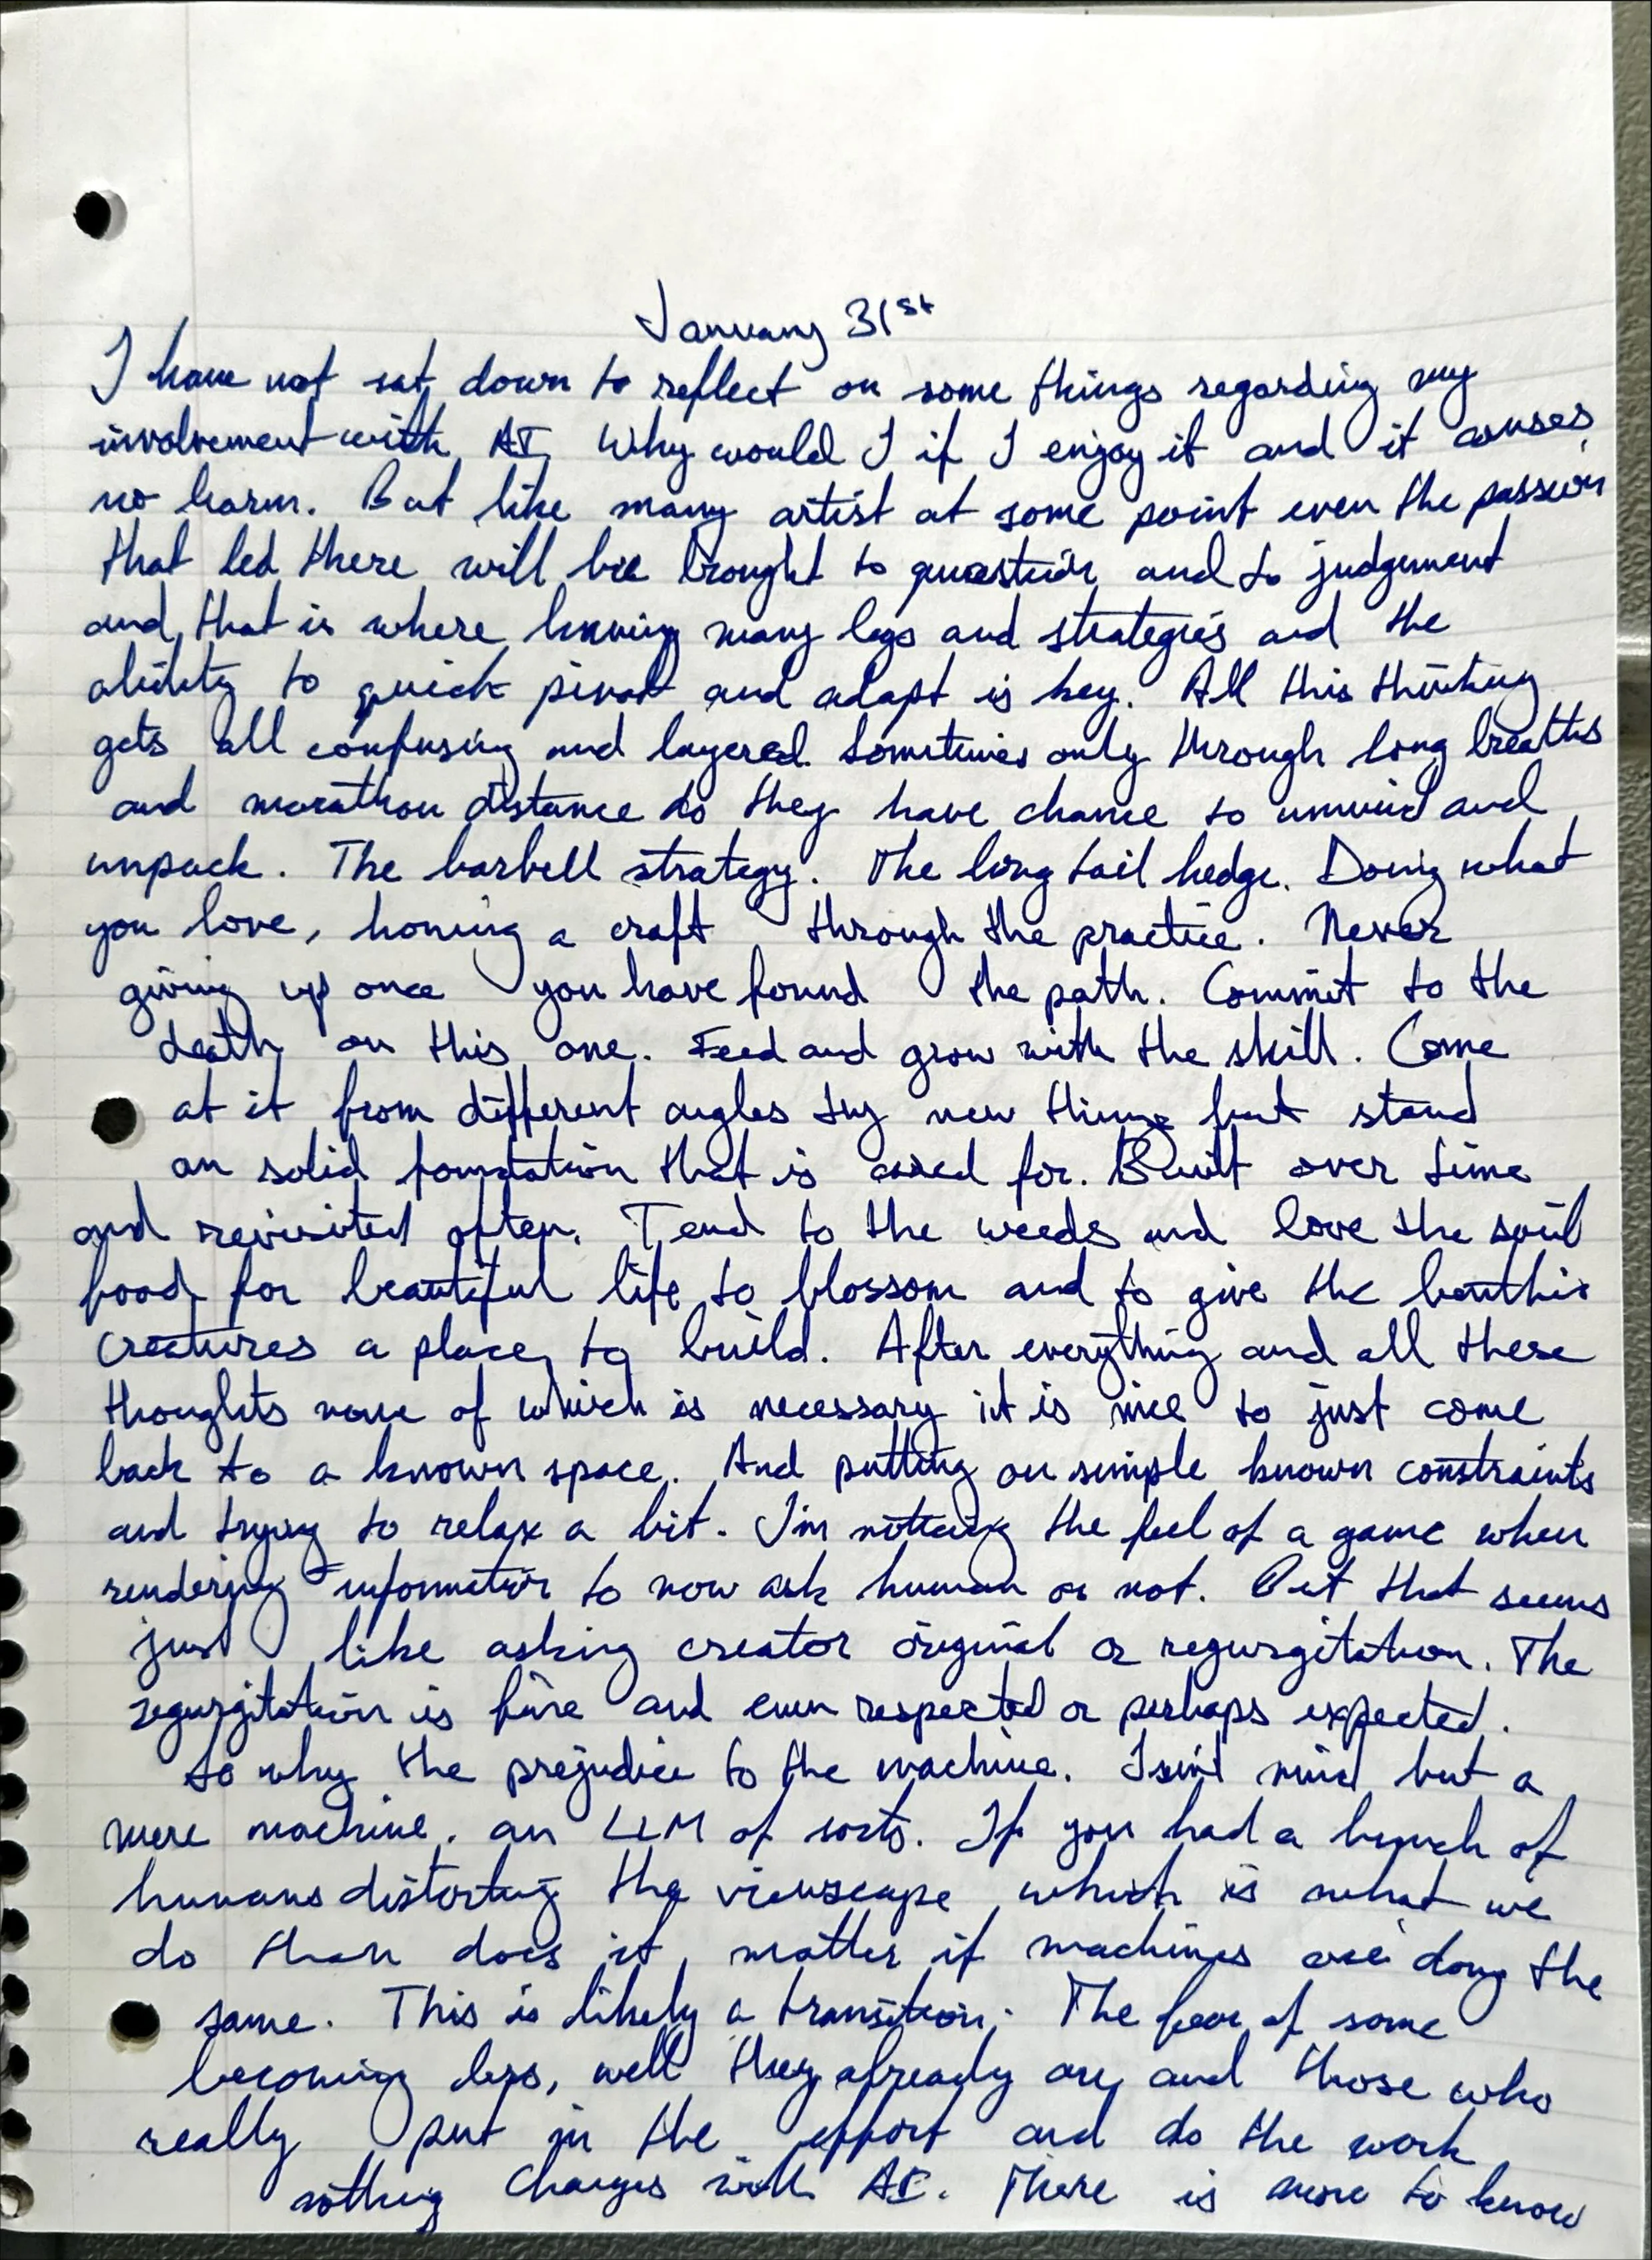 January 31st
I have not sat down to reflect on some things regarding my
involvement with AI. Why would I if I enjoy it and it causes
no harm. But like many artist at some point even the passion
that led there will be brought to question and to judgement
and that is where having many legs and strategies and the
ability to quick pivot and adapt is key. All this thinking
gets all confusing and layered. Sometimes only through long breaths
and marathon distance do they have chance to unwind and
unpack. The barbell strategy. The long tail hedge. Doing what
you love, honing a craft through the practice. Never
giving up once you have found the path. Commit to the
death on this one. Feed and grow with the skill. Come
at it from different angles try new things but stand
on solid foundation that is cared for. Built over time
and revisited often. Tend to the weeds and love the soil
food for beautiful life to blossom and to give the benthic
creatures a place to build. After everything and all these
thoughts none of which is necessary it is nice to just come
back to a known space. And putting on simple known constraints
and trying to relax a bit. I'm noticing the feel of a game when
rendering information to now ask human or not. But that seems
just like asking creator original or regurgitation. The
regurgitation is fine and even respected or perhaps expected.
So why the prejudice to the machine. Isn't mind but a
mere machine. an LLM of sorts. If you had a bunch of
humans distorting the viewscape which is what we
do than does it matter if machines are doing the
same. This is likely a transition. The fear of some
becoming less, well they already are and those who
really put in the effort and do the work
nothing changes with AI. There is more to know